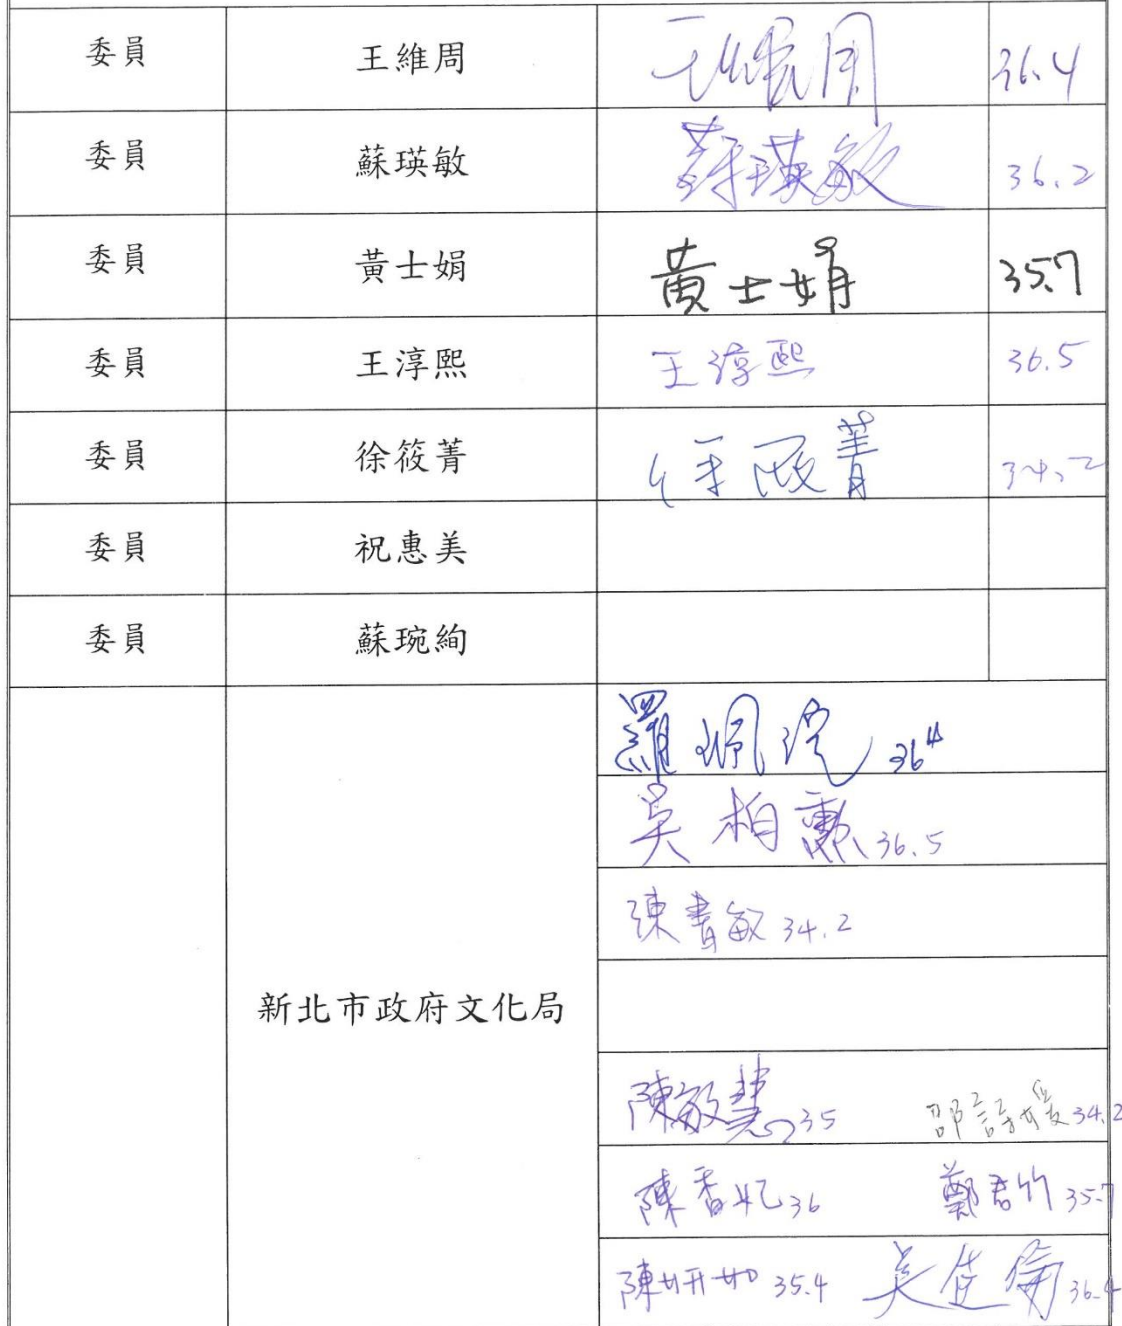 委員 王維周 王維周 36.4
委員 蘇瑛敏 蘇瑛敏 36.2
委員 黃士娟 黃士娟 35.7
委員 王淳熙 王淳熙 36.5
委員 徐筱菁 徐筱菁 34.2
委員 祝惠美
委員 蘇琬絢
羅珮瑄 36.4
吳柏勳 36.5
陳書敏 34.2
新北市政府文化局
陳敏慧 35 邵詩媛 34.2
陳香妃 36 鄭君竹 35.7
陳妍如 35.4 吳佳倫 36.4